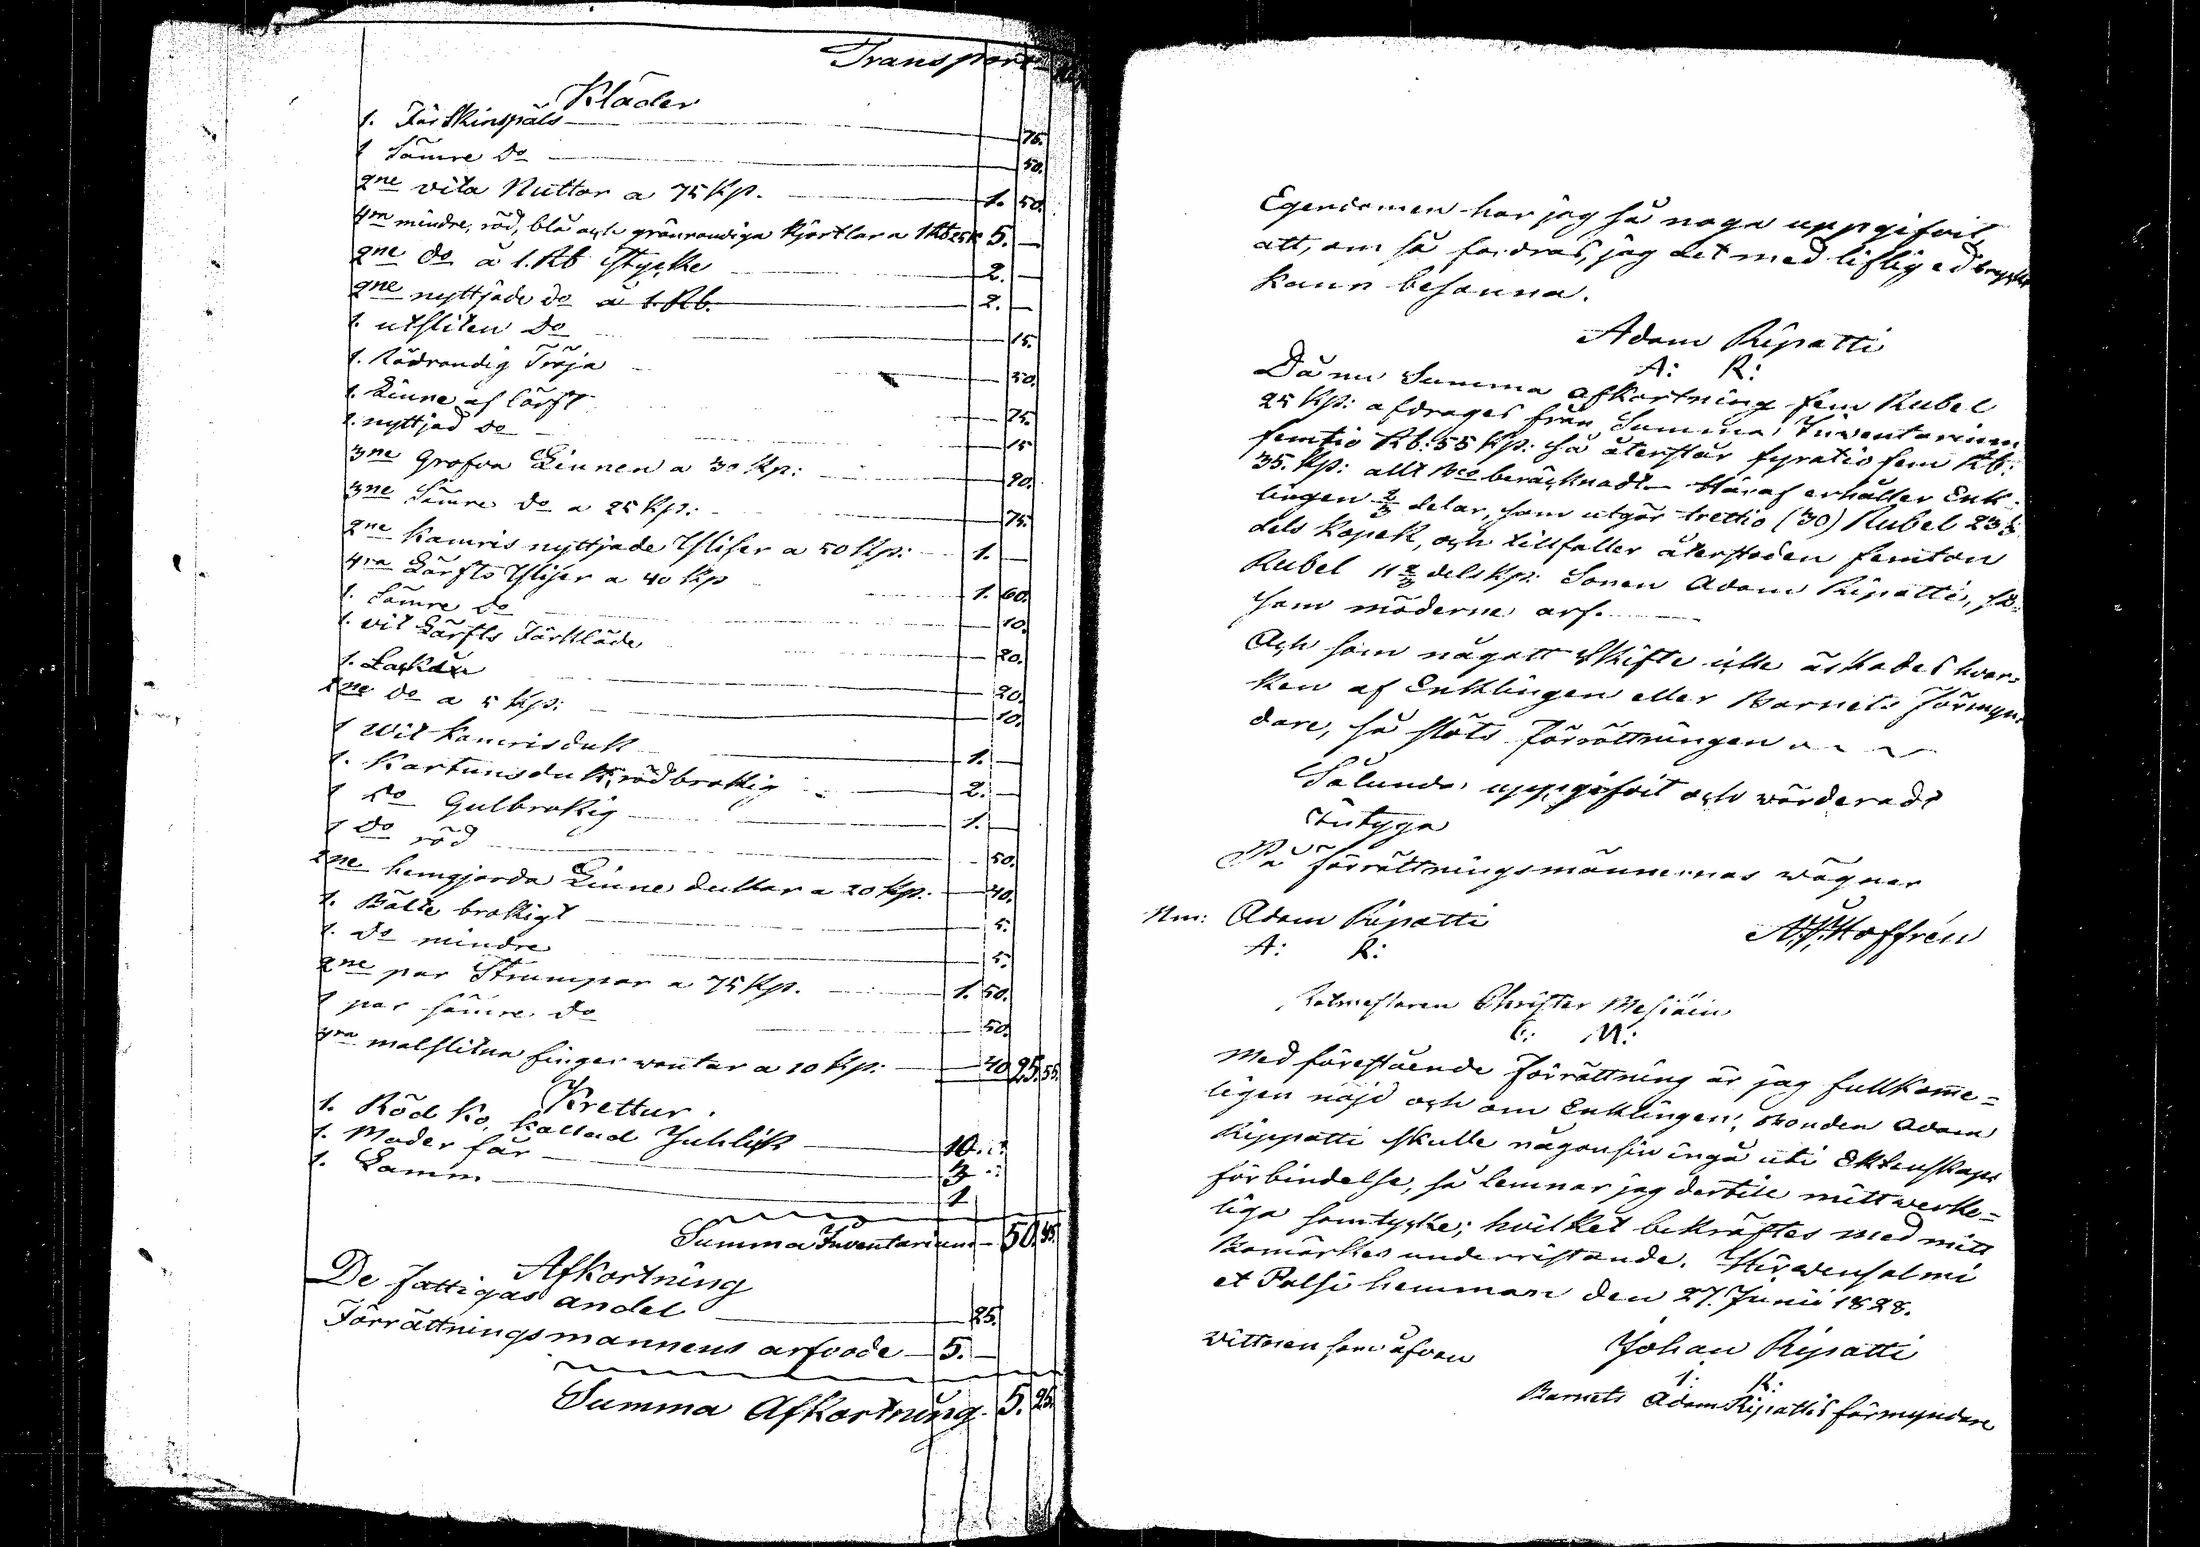 Transport
Kläder
1. Fårskinspäls 75.
1 Sämre do 50.
2ne vita Nuttor a 75 Kp. 1. 50.
4ra mindre, röd, blå och grönrandiga Kjortlar a 1 Rb 25 K 5. —
2ne do a 1. Rb stycke 2. —
2ne nyttjade do a 1. Rb. 2. —
1. utsliten do 15.
1. Rödrandig Tröja 50.
1. Linne af lärft 75.
1. nyttjad do 15
3ne Grofva Linnen a 30 Kp: 90.
3ne Sämre do a 25 Kp: 75.
2ne Kamris nyttjade a 50 Kp: 1. —
4ra Lärfts a 40 Kp 1. 60.
1. Sämre do 10.
1. vit Lärfts Förkläde 20.
1. 20.
2ne do a 5 Kp: 10.
1 Wit Kamrisduk 1. —
1. Kartunsduk, rödbrokig 2. —
1 do Gulbrokig 1. —
1 do röd 50.
2ne hemgjorda Linne dukar a 20 Kp. 40.
1. Bälte brokigt 5.
1. do mindre 5.
2ne par Strumpor a 75 Kp. 1. 50.
1 par sämre do 50.
4ra malslitna finger wantar a 10 Kp: 40 25. 55.
Krettur.
1. Röd Ko, Kallad 10.
1. Moder får 3
1. Lamm 1
Summa Inventarium 50.
Afkortning
De fattigas andel 25.
Förrättningsmannens arfvode 5. —
Summa Afkortning. 5. 25.
Egendomen har jag så noga uppgifvit
att, om så fordras, jag det med liflig ed
kann besanna.
Adam Ripatti
A: R:
Då nu Summa afkortning fem Rubel
25 Kp: afdrages från Summa Inventarium
femtio Rb: 55 Kp: så återstår fyratio fem Rb:
35. Kp: allt Bco beräcknadt — Häraf erhåller Enk-
lingen 2/3 delar, som utgör trettio (30) Rubel 23 1/3
dels Kopek, och tillfaller återstoden femton
Rubel 11 2/3 dels Kp: Sonen Adam Ripatti, så-
som möderne arf.
Och som någott Skifte icke äskades hvar-
ken af Enklingen eller Barnets Förmyn-
dare, så slöts förrättningen
Sålunda uppgifvit och wärderadt
intyga
På förrättningsmännernas wägnar
Nm: Adam Ripatti Hoffrén
A: R:
Rotmestaren Christer Mesiäin
C: M:
Med förestående förrättning är jag fullkomme=
ligen nöjd och om Enklingen, Bonden Adam
Rippatti skulle någonsin ingå uti Ektenskaps
förbindelse, så lemnar jag dertill mitt werke=
liga samtycke; hvilket bekräftes med mitt
Bomärkes underristande. Hirwensalmi
et Pälsi hemman den 27. Junii 1828.
Johan Ripatti
I: R:
Wittnen som åfvan
Barnets Adam Ripattis förmyndare